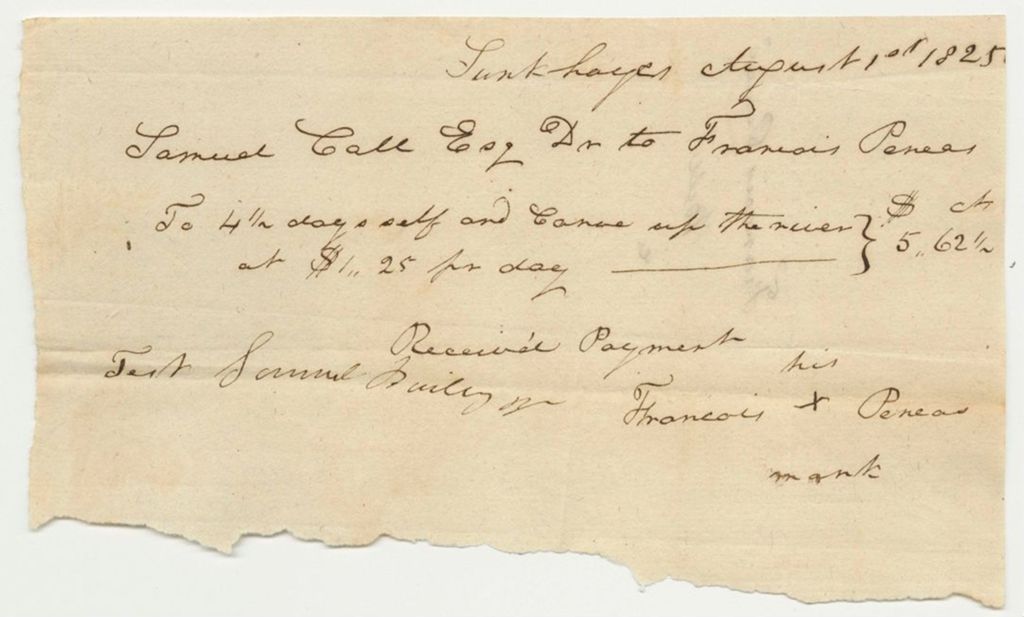 Sunkhayes August 1st 1825
Samuel Call Esq Dr to Francois Peneas
To 4 1/2 days self and Canoe up the river } $ cts
at $1,, 25 pr day ——— 5,, 62 1/2
Receiv'd Payment
Test Samuel Bailey Jr his
Francois + Peneas
mark